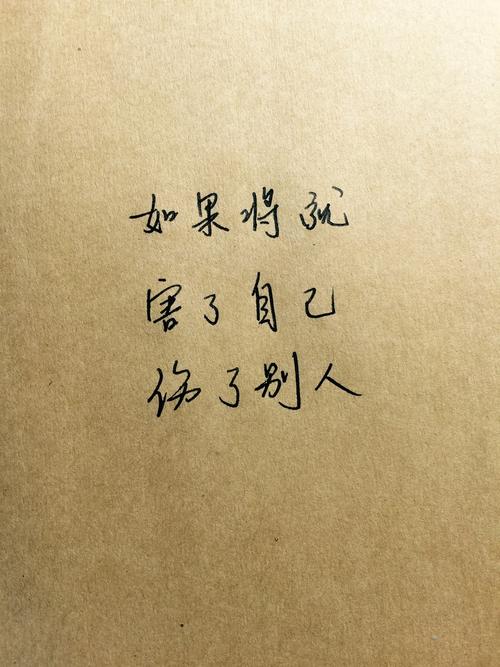 如果将就
害了自己
伤了别人